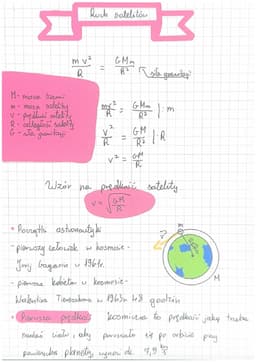 Ruch satelitów
m v² / R = G M m / R² siła grawitacji
M - masa Ziemi
m - masa satelity
v - prędkość satelity
R - odległość satelity
G - siła grawitacji
mv² / R = G M m / R² | : m
v² / R = G M / R² | · R
v² = GM / R
Wzór na prędkość satelity
v = √GM / R
• Początki astronautyki
- pierwszy człowiek w kosmosie -
Jurij Gagarin w 1961r.
- pierwsza kobieta w kosmosie -
Walentina Tierieszkowa w 1963r. 48 godzin
M
• Pierwsza prędkość kosmiczna to prędkość jaką trzeba
nadać ciału, aby poruszało się po orbicie przy
powierzchni planety, wynosi ok. 7,9 km/s